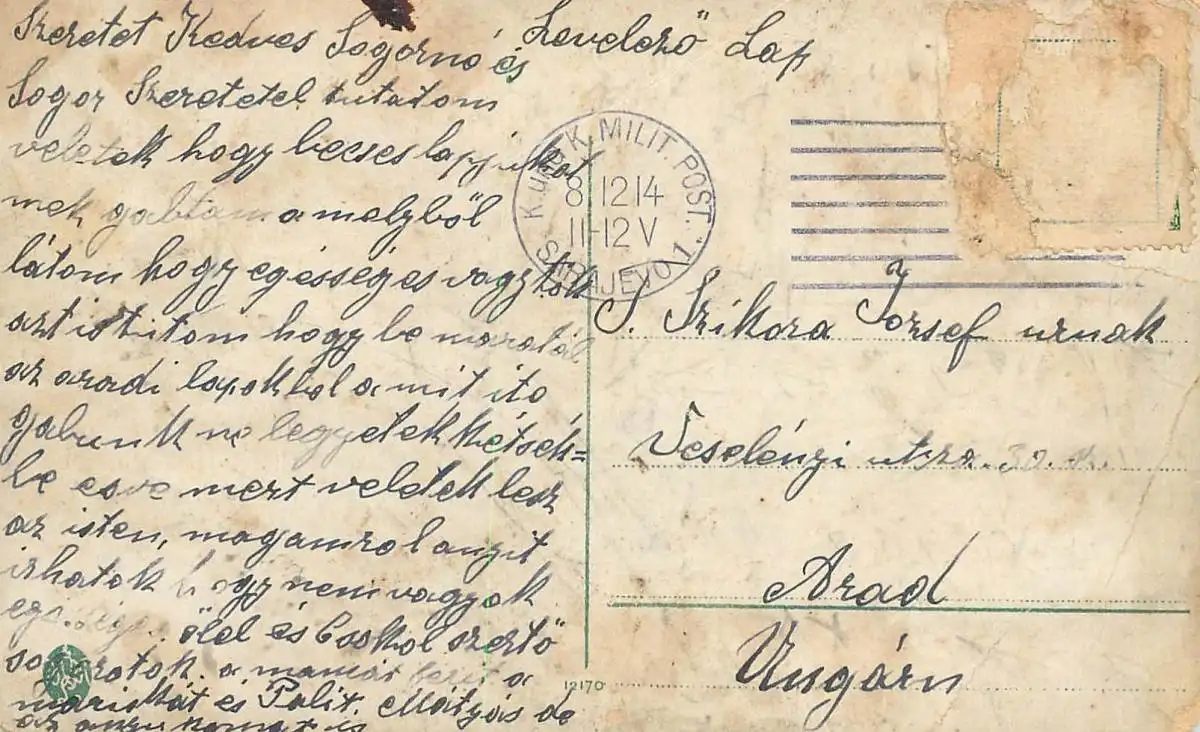 Szeretet Kedves Sogornó és
Sogor Szeretetel tutatom
veletek hogy becses lapjukat
mek gabtam a melyböl
látom hogy egésségés vagytok
azt is tutom hogy be
az aradi lapokbol a mit ito
gabunk ne legyetek kétsék=
be esve mert veletek lesz
az isten, magamrol anyit
irhatok hogy nem vagyok
ölel és Csokol szertő
a mamát a
mariskát és Palit. Mátyás de
az is
Levelező Lap
K. u. K. MILIT. POST.
8 12 14
11-12 V
SARAJEVO 1
S. Szikora József urnak
Veselényi utza. 30.
Arad
Ungárn
12170